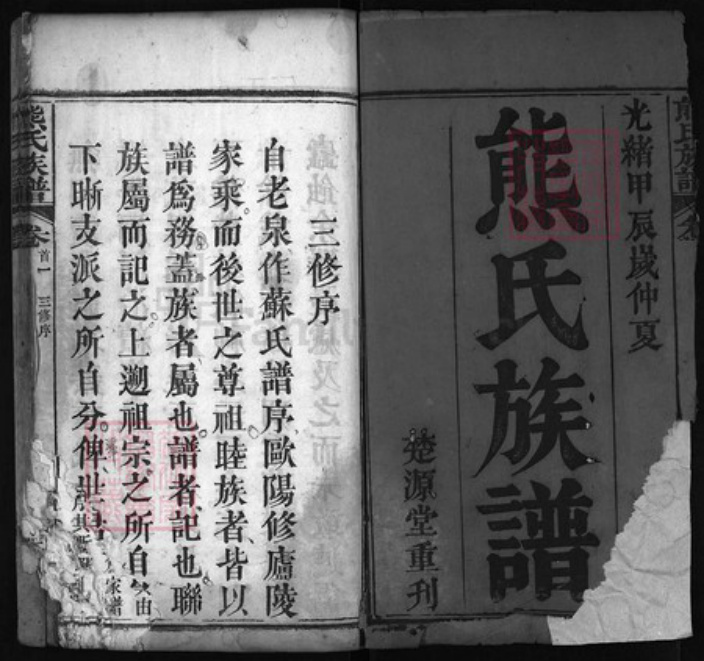 光緒甲辰歲仲夏
熊氏族譜
楚源堂重刊
三修序
自老泉作蘇氏譜序歐陽修廬陵
家乘而後世之尊祖睦族者皆以
譜爲務蓋族者屬也譜者記也聯
族屬而記之上遡祖宗之所自
下晰支派之所自分俾世
熊氏族譜
卷首一
三修序